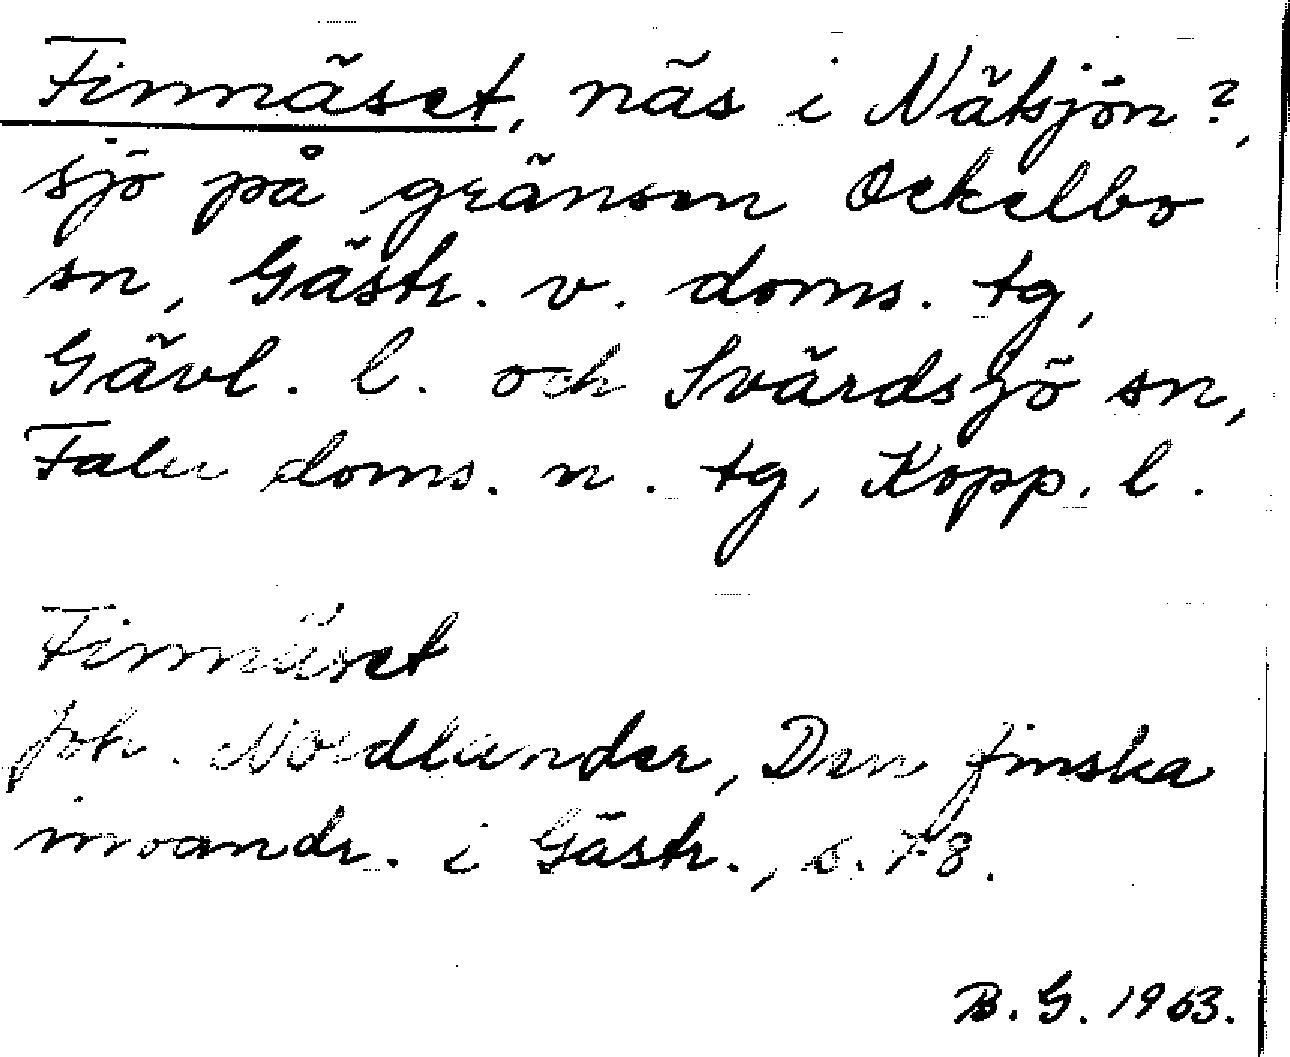 Finnäset, näs i Nätsjön?,
sjö på gränsen Ockelbo
sn, Gästr. v. doms. tg,
Gävl. l. och Svärdsjö sn,
Falu doms. n. tg, Kopp. l.
Finnäset
Joh. Nordlander, Den finska
invandr. i Gästr., s. 78.
B. G. 1963.